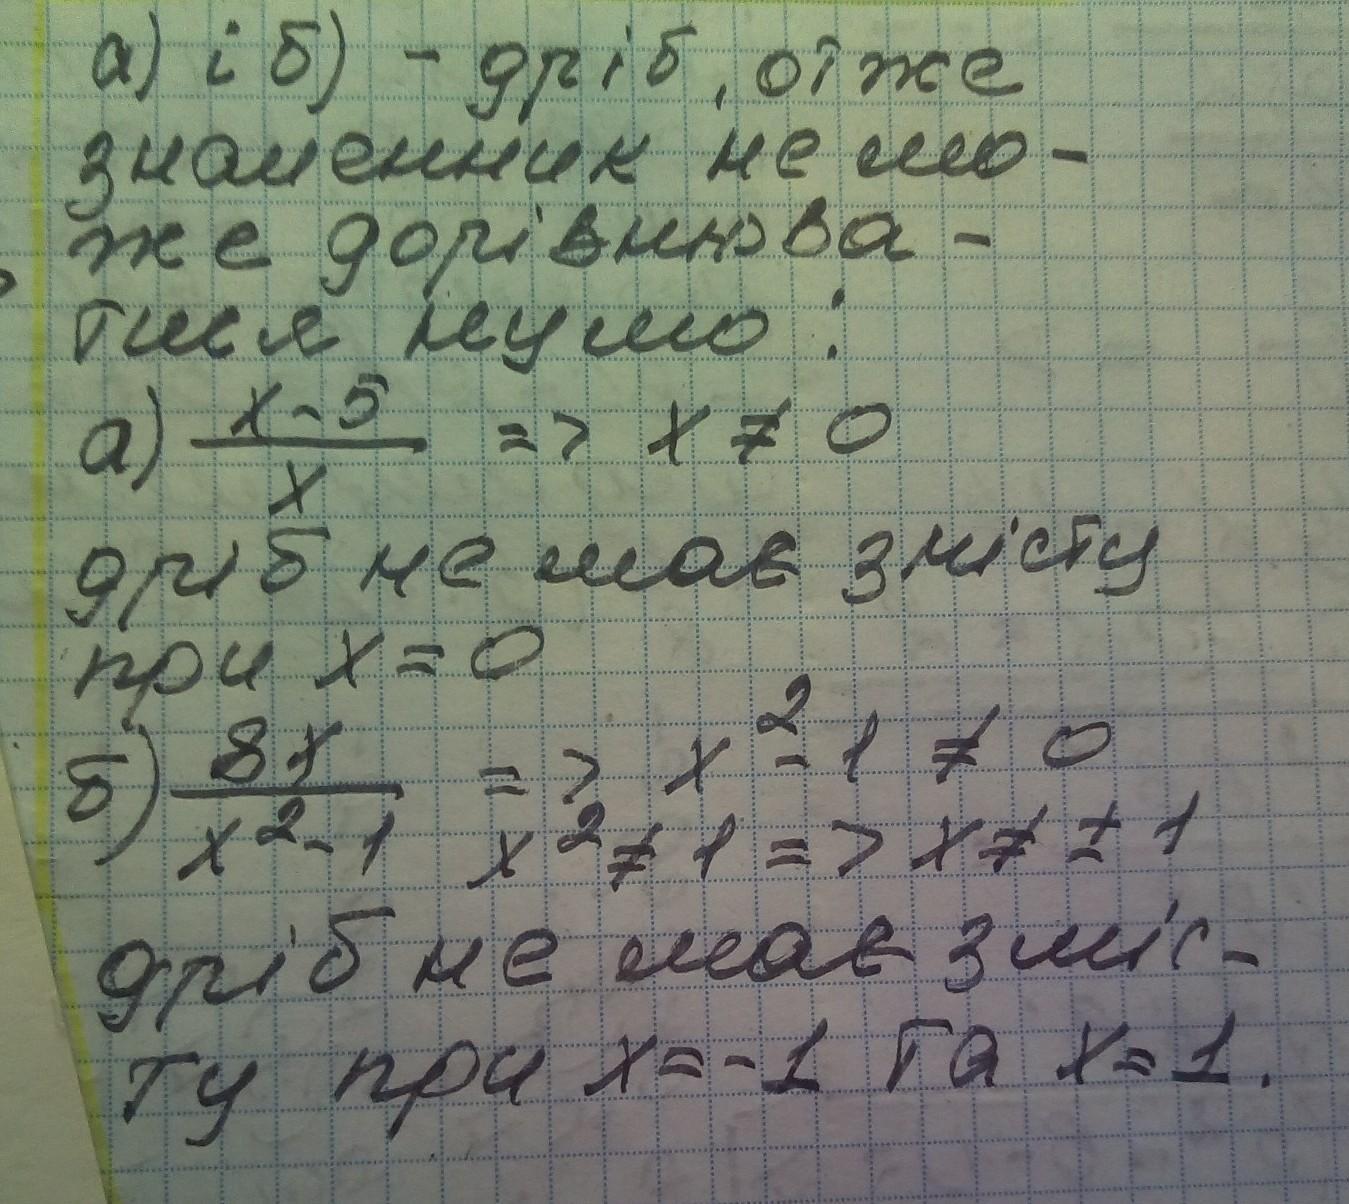 а) і б) - дріб, отже
знаменник не мо-
же дорівнюва-
тися нулю:
а) x-5/x => x ≠ 0
дріб не має змісту
при x=0
б) 8x/x²-1 => x²-1 ≠ 0
x² ≠ 1 => x ≠ ±1
дріб не має зміс-
ту при x=-1 та x=1.